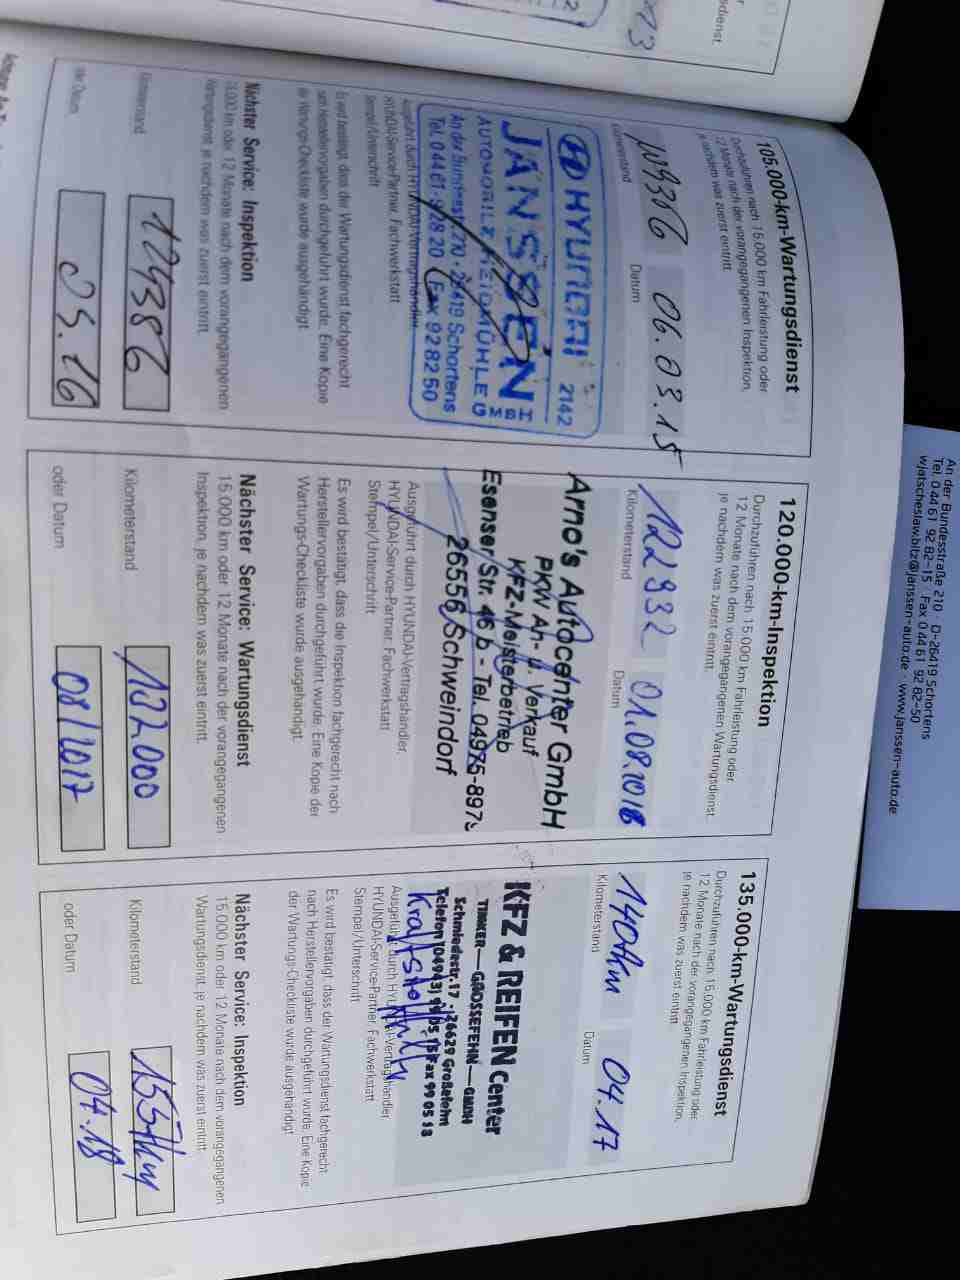 dienst.
105.000-km-Wartungsdienst
Durchzuführen nach 15.000 km Fahrleistung oder
12 Monate nach der vorangegangenen Inspektion,
je nachdem was zuerst eintritt.
Kilometerstand
Datum
06.03.15
HYUNDAI 2142
JANSSEN
AUTOMOBILE HEIDMÜHLE GMBH
An der Bundesstr. 210 · 26419 Schortens
Tel. 04461 - 92820 Fax 928250
Ausgeführt durch HYUNDAI-Vertragshändler,
HYUNDAI-Service-Partner, Fachwerkstatt
Stempel/Unterschrift
Es wird bestätigt, dass der Wartungsdienst fachgerecht
nach Herstellervorgaben durchgeführt wurde. Eine Kopie
der Wartungs-Checkliste wurde ausgehändigt.
Nächster Service: Inspektion
15.000 km oder 12 Monate nach dem vorangegangenen
Wartungsdienst, je nachdem was zuerst eintritt.
Kilometerstand
124386
oder Datum
03.16
120.000-km-Inspektion
Durchzuführen nach 15.000 km Fahrleistung oder
12 Monate nach dem vorangegangenen Wartungsdienst,
je nachdem was zuerst eintritt.
Kilometerstand
122932
Datum
01.08.2016
Arno's Autocenter GmbH
PKW An- u. Verkauf
KFZ-Meisterbetrieb
Esenser Str. 46 b - Tel. 04975-897
26556 Schweindorf
Ausgeführt durch HYUNDAI-Vertragshändler,
HYUNDAI-Service-Partner, Fachwerkstatt
Stempel/Unterschrift
Es wird bestätigt, dass die Inspektion fachgerecht nach
Herstellervorgaben durchgeführt wurde. Eine Kopie der
Wartungs-Checkliste wurde ausgehändigt.
Nächster Service: Wartungsdienst
15.000 km oder 12 Monate nach der vorangegangenen
Inspektion, je nachdem was zuerst eintritt.
Kilometerstand
132000
oder Datum
08/2017
135.000-km-Wartungsdienst
Durchzuführen nach 15.000 km Fahrleistung oder
12 Monate nach der vorangegangenen Inspektion,
je nachdem was zuerst eintritt.
Kilometerstand
140tkm
Datum
04.17
KFZ & REIFEN Center
TIMKER—GROSSEFEHN—GMBH
Schmiedestr.17 · 26629 Großefehn
Telefon (04943) 99 05 15 Fax 99 05 13
Ausgeführt durch HYUNDAI-Vertragshändler,
HYUNDAI-Service-Partner, Fachwerkstatt
Stempel/Unterschrift
Es wird bestätigt, dass der Wartungsdienst fachgerecht
nach Herstellervorgaben durchgeführt wurde. Eine Kopie
der Wartungs-Checkliste wurde ausgehändigt.
Nächster Service: Inspektion
15.000 km oder 12 Monate nach dem vorangegangenen
Wartungsdienst, je nachdem was zuerst eintritt.
Kilometerstand
155tkm
oder Datum
04.18
An der Bundesstraße 210 · D-26419 Schortens
Tel. 0 44 61 92 82-15 Fax 0 44 61 92 82-50
wjatscheslaw.bitz@janssen-auto.de · www.janssen-auto.de